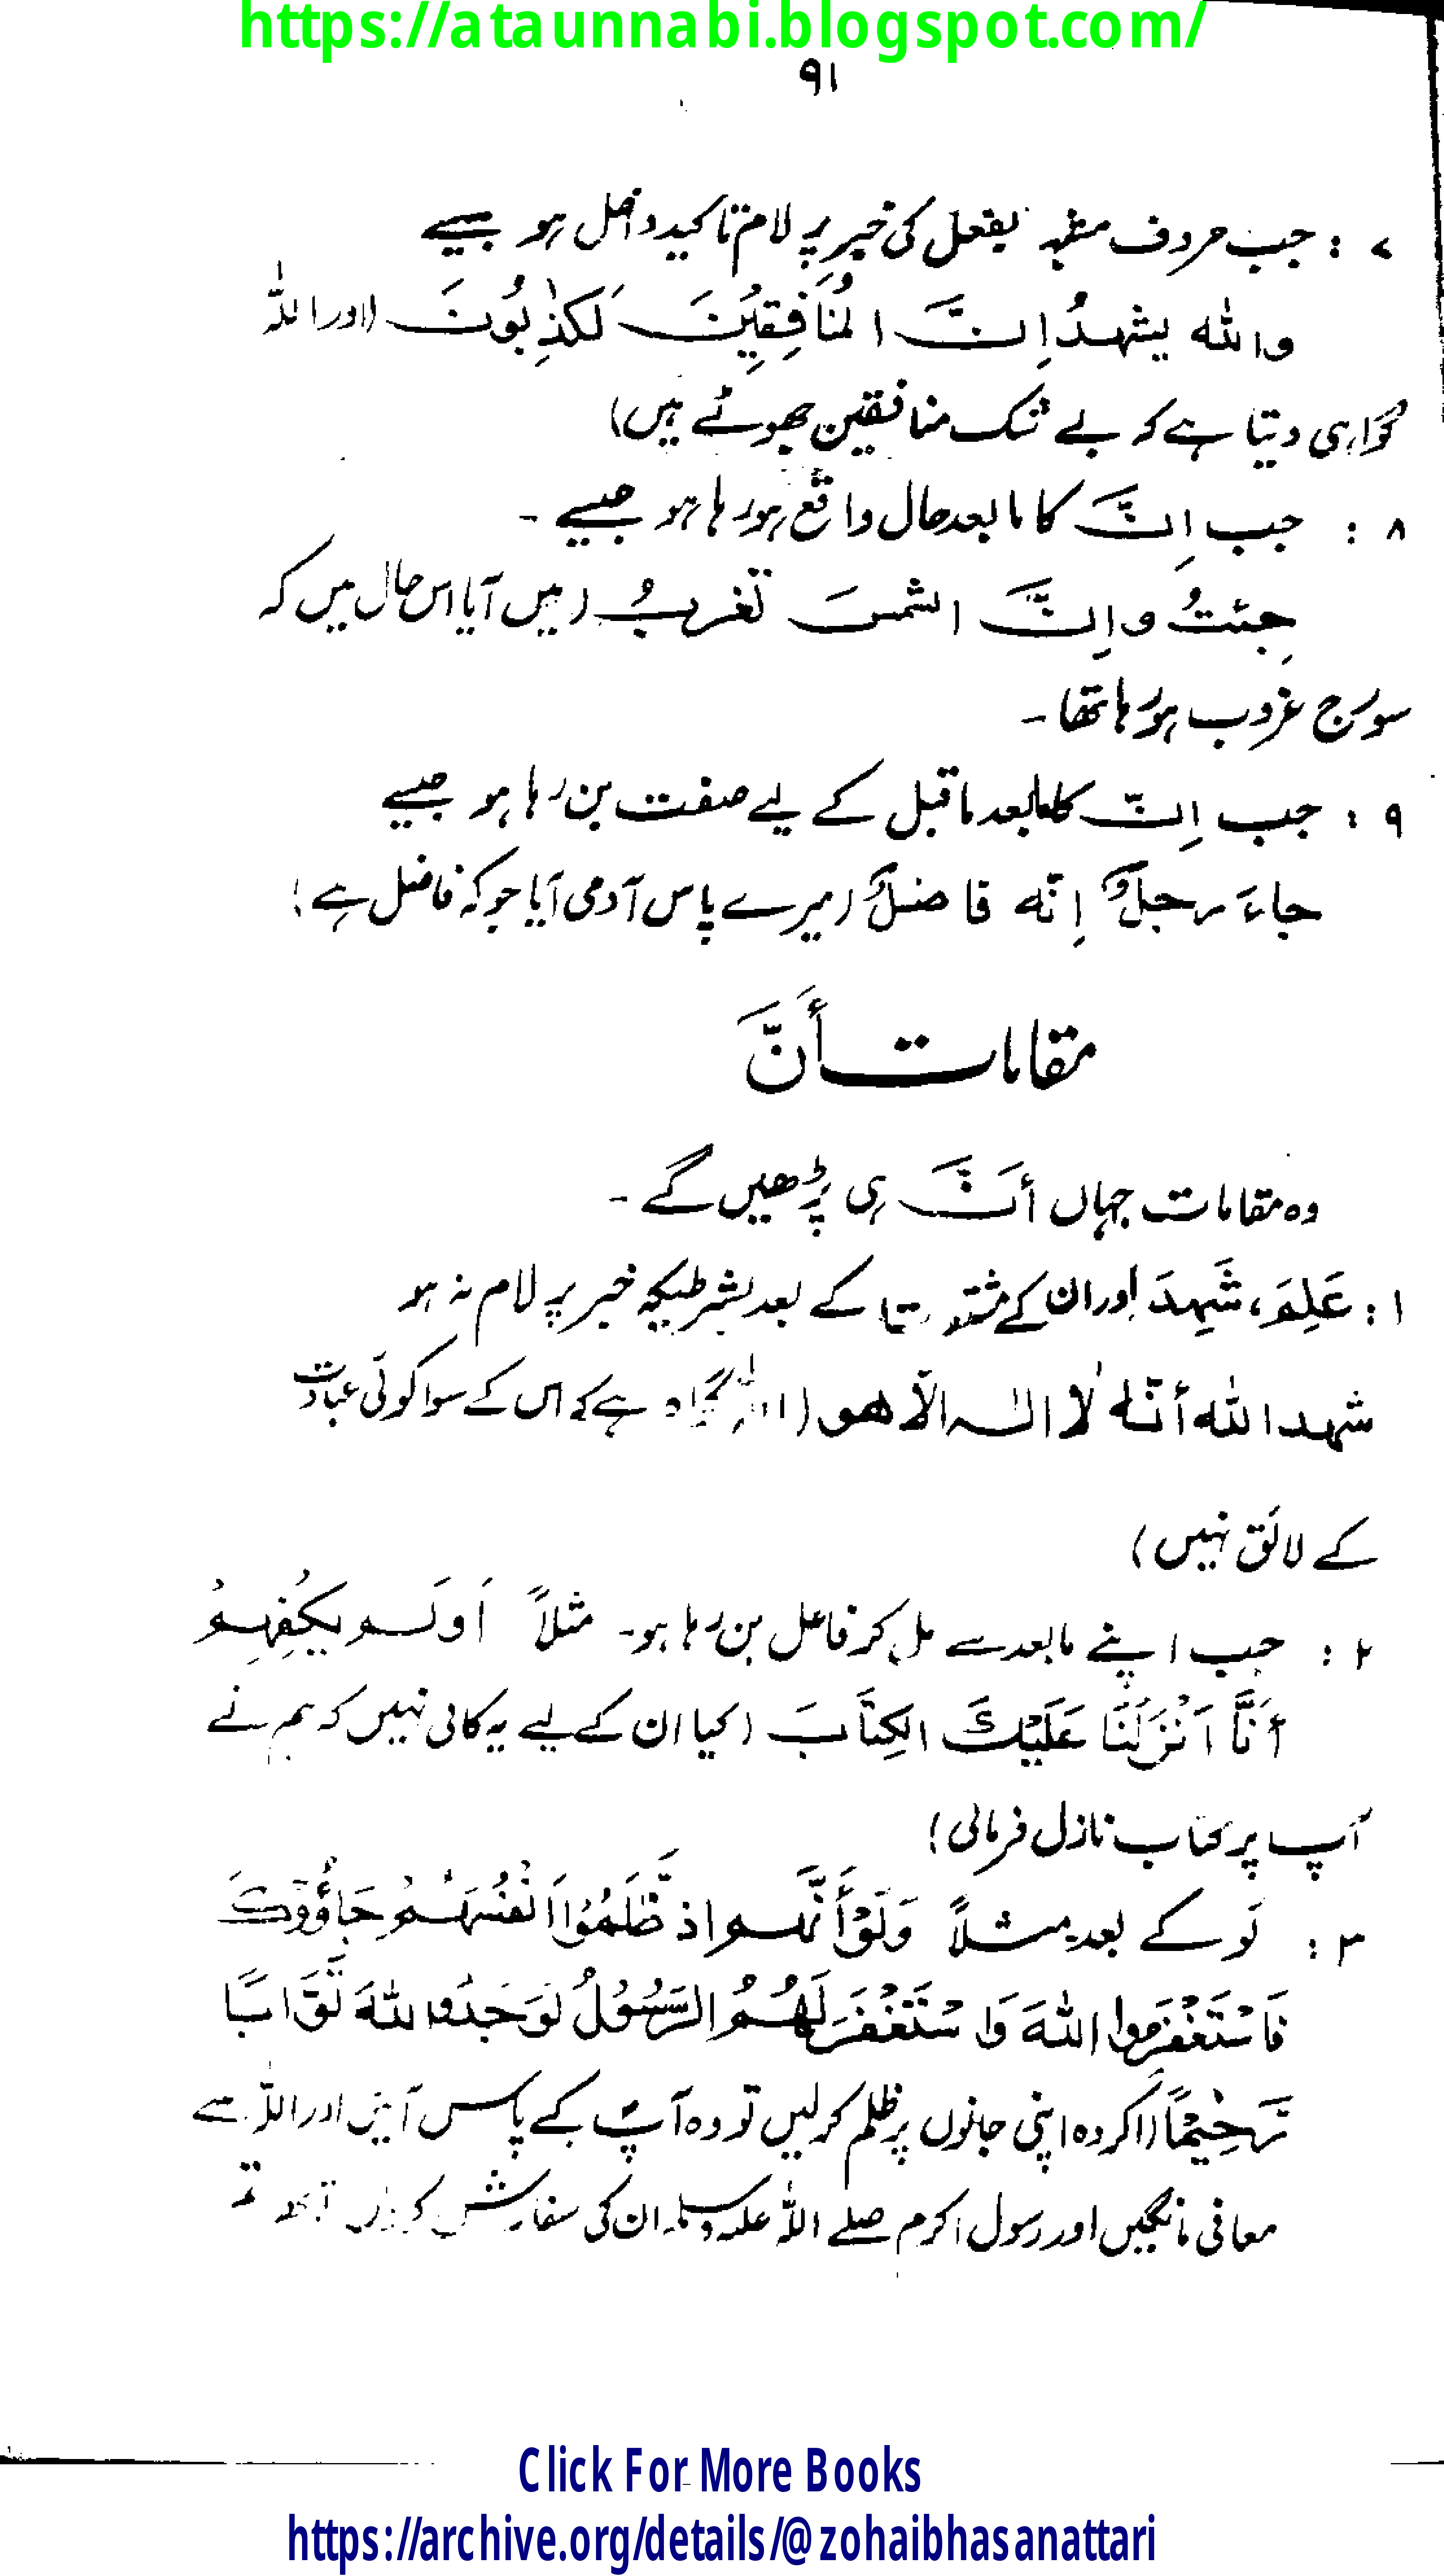 https://ataunnabi.blogspot.com/
۹۱
۷ : جب حروف مشبہ بفعل کی خبر پر لام تاکید داخل ہو جیسے
والله یشهدُ اِنَّ المُنَافِقِیْنَ لَکٰذِبُونَ (اور اللہ
گواہی دیتا ہے کہ بے شک منافقین جھوٹے ہیں)
۸ : جب اِنَّ کا مابعد حال واقع ہو رہا ہو جیسے ۔
جِئتُ و اِنَّ الشمسَ تغربُ (میں آیا اس حال میں کہ
سورج غروب ہو رہا تھا ۔
۹ : جب اِنّ کا مابعد ماقبل کے لیے صفت بن رہا ہو جیسے
جاء رجلٌ اِنّه فاضلٌ (میرے پاس آدمی آیا جو کہ فاضل ہے)
مقامات أَنَّ
وہ مقامات جہاں أَنَّ ہی پڑھیں گے ۔
۱ : عَلِمَ، شَهِدَ اور ان کے کے بعد بشرطیکہ خبر پر لام نہ ہو
شهد الله أنّهٗ لا الٰه الّا هو (اللہ گواہ ہے کہ اس کے سوا کوئی عبادت
کے لائق نہیں)
۲ : جب اپنے مابعد سے مل کر فاعل بن رہا ہو۔ مثلاً اَوَلَم یَکْفِهِمْ
أَنَّا اَنْزَلْنَا عَلَیْكَ الکِتَابَ (کیا ان کے لیے یہ کافی نہیں کہ ہم نے
آپ پر کتاب نازل فرمائی)
۳ : لَو کے بعد مثلاً وَلَوْ أَنَّهم اذ ظَّلَمُوْا اَنْفُسَهُمْ جَاؤُوْكَ
فَاسْتَغْفَرُوا اللهَ وَاسْتَغْفَرَ لَهُمُ الرَّسُوْلُ لَوَجَدُوا اللهَ تَوَّابًا
رَّحِیْمًا (اگر وہ اپنی جانوں پر ظلم کر لیں تو وہ آپ کے پاس آئیں اور اللہ سے
معافی مانگیں اور رسول اکرم صلے اللہ علیہ وسلم ان کی سفارش
Click For More Books
https://archive.org/details/@zohaibhasanattari